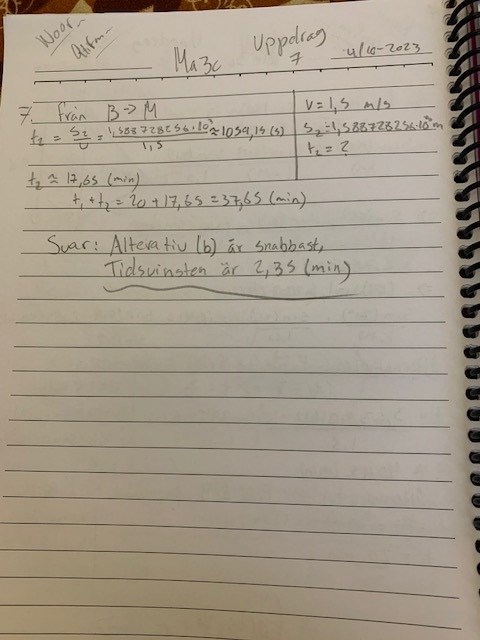 Noor
Ma3c
Uppdrag
7
4/10-2023
7. Från B→M
v = 1,5 m/s
t₂ = S₂/v = 1,588728256·10³/1,5 ≈ 1059,15 (s)
S₂ = 1,588728256·10³ m
t₂ = ?
t₂ ≈ 17,65 (min)
t₁ + t₂ = 20 + 17,65 = 37,65 (min)
Svar: Alterativ (b) är snabbast,
Tidsvinsten är 2,35 (min)